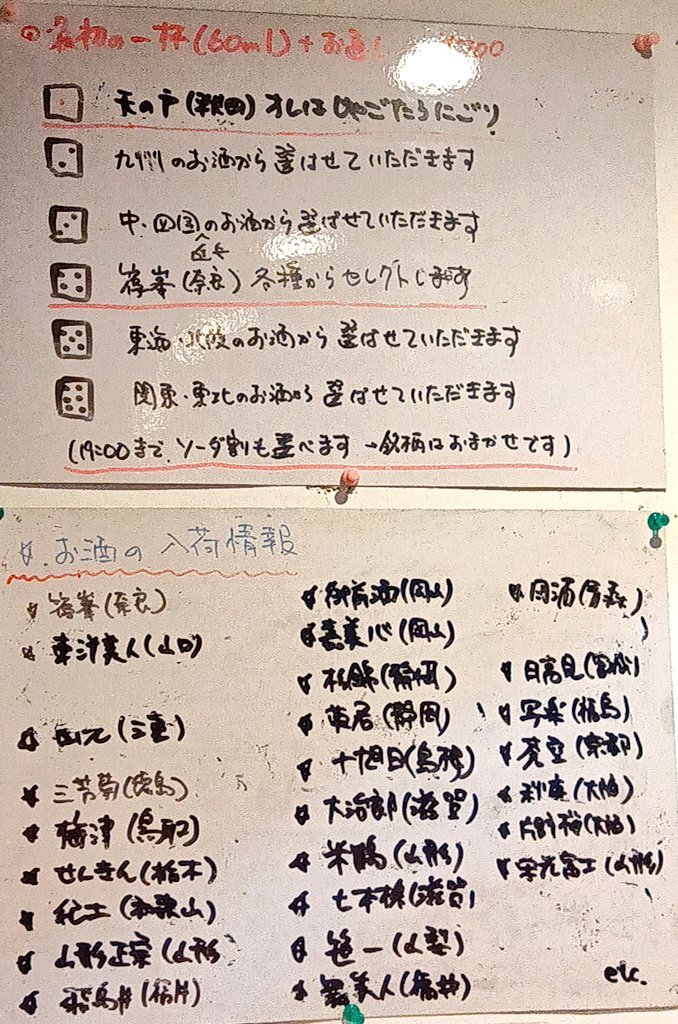 最初の一杯(60ml)+お通し
天の戸(秋田) オレはじゃごたろうにごり
九州のお酒から選ばせていただきます
中・四国のお酒から選ばせていただきます
近畿
篠峯(奈良)各種からセレクトします
東海・北陸のお酒から選ばせていただきます
関東・東北のお酒から選ばせていただきます
(19:00まで、ソーダ割も選べます→銘柄はおまかせです)
お酒の入荷情報
篠峯(奈良)
東洋美人(山口)
田光(三重)
三芳菊(徳島)
梅津(鳥取)
せんきん(栃木)
紀土(和歌山)
山形正宗(山形)
飛鳥井(福井)
御前酒(岡山)
嘉美心(岡山)
杉錦(静岡)
英君(静岡)
十旭日(島根)
大治郎(滋賀)
米鶴(山形)
七本槍(滋賀)
笹一(山梨)
舞美人(福井)
田酒(青森)
日高見(宮城)
写楽(福島)
蒼空(京都)
利庵(大阪)
片野桜(大阪)
栄光冨士(山形)
etc.